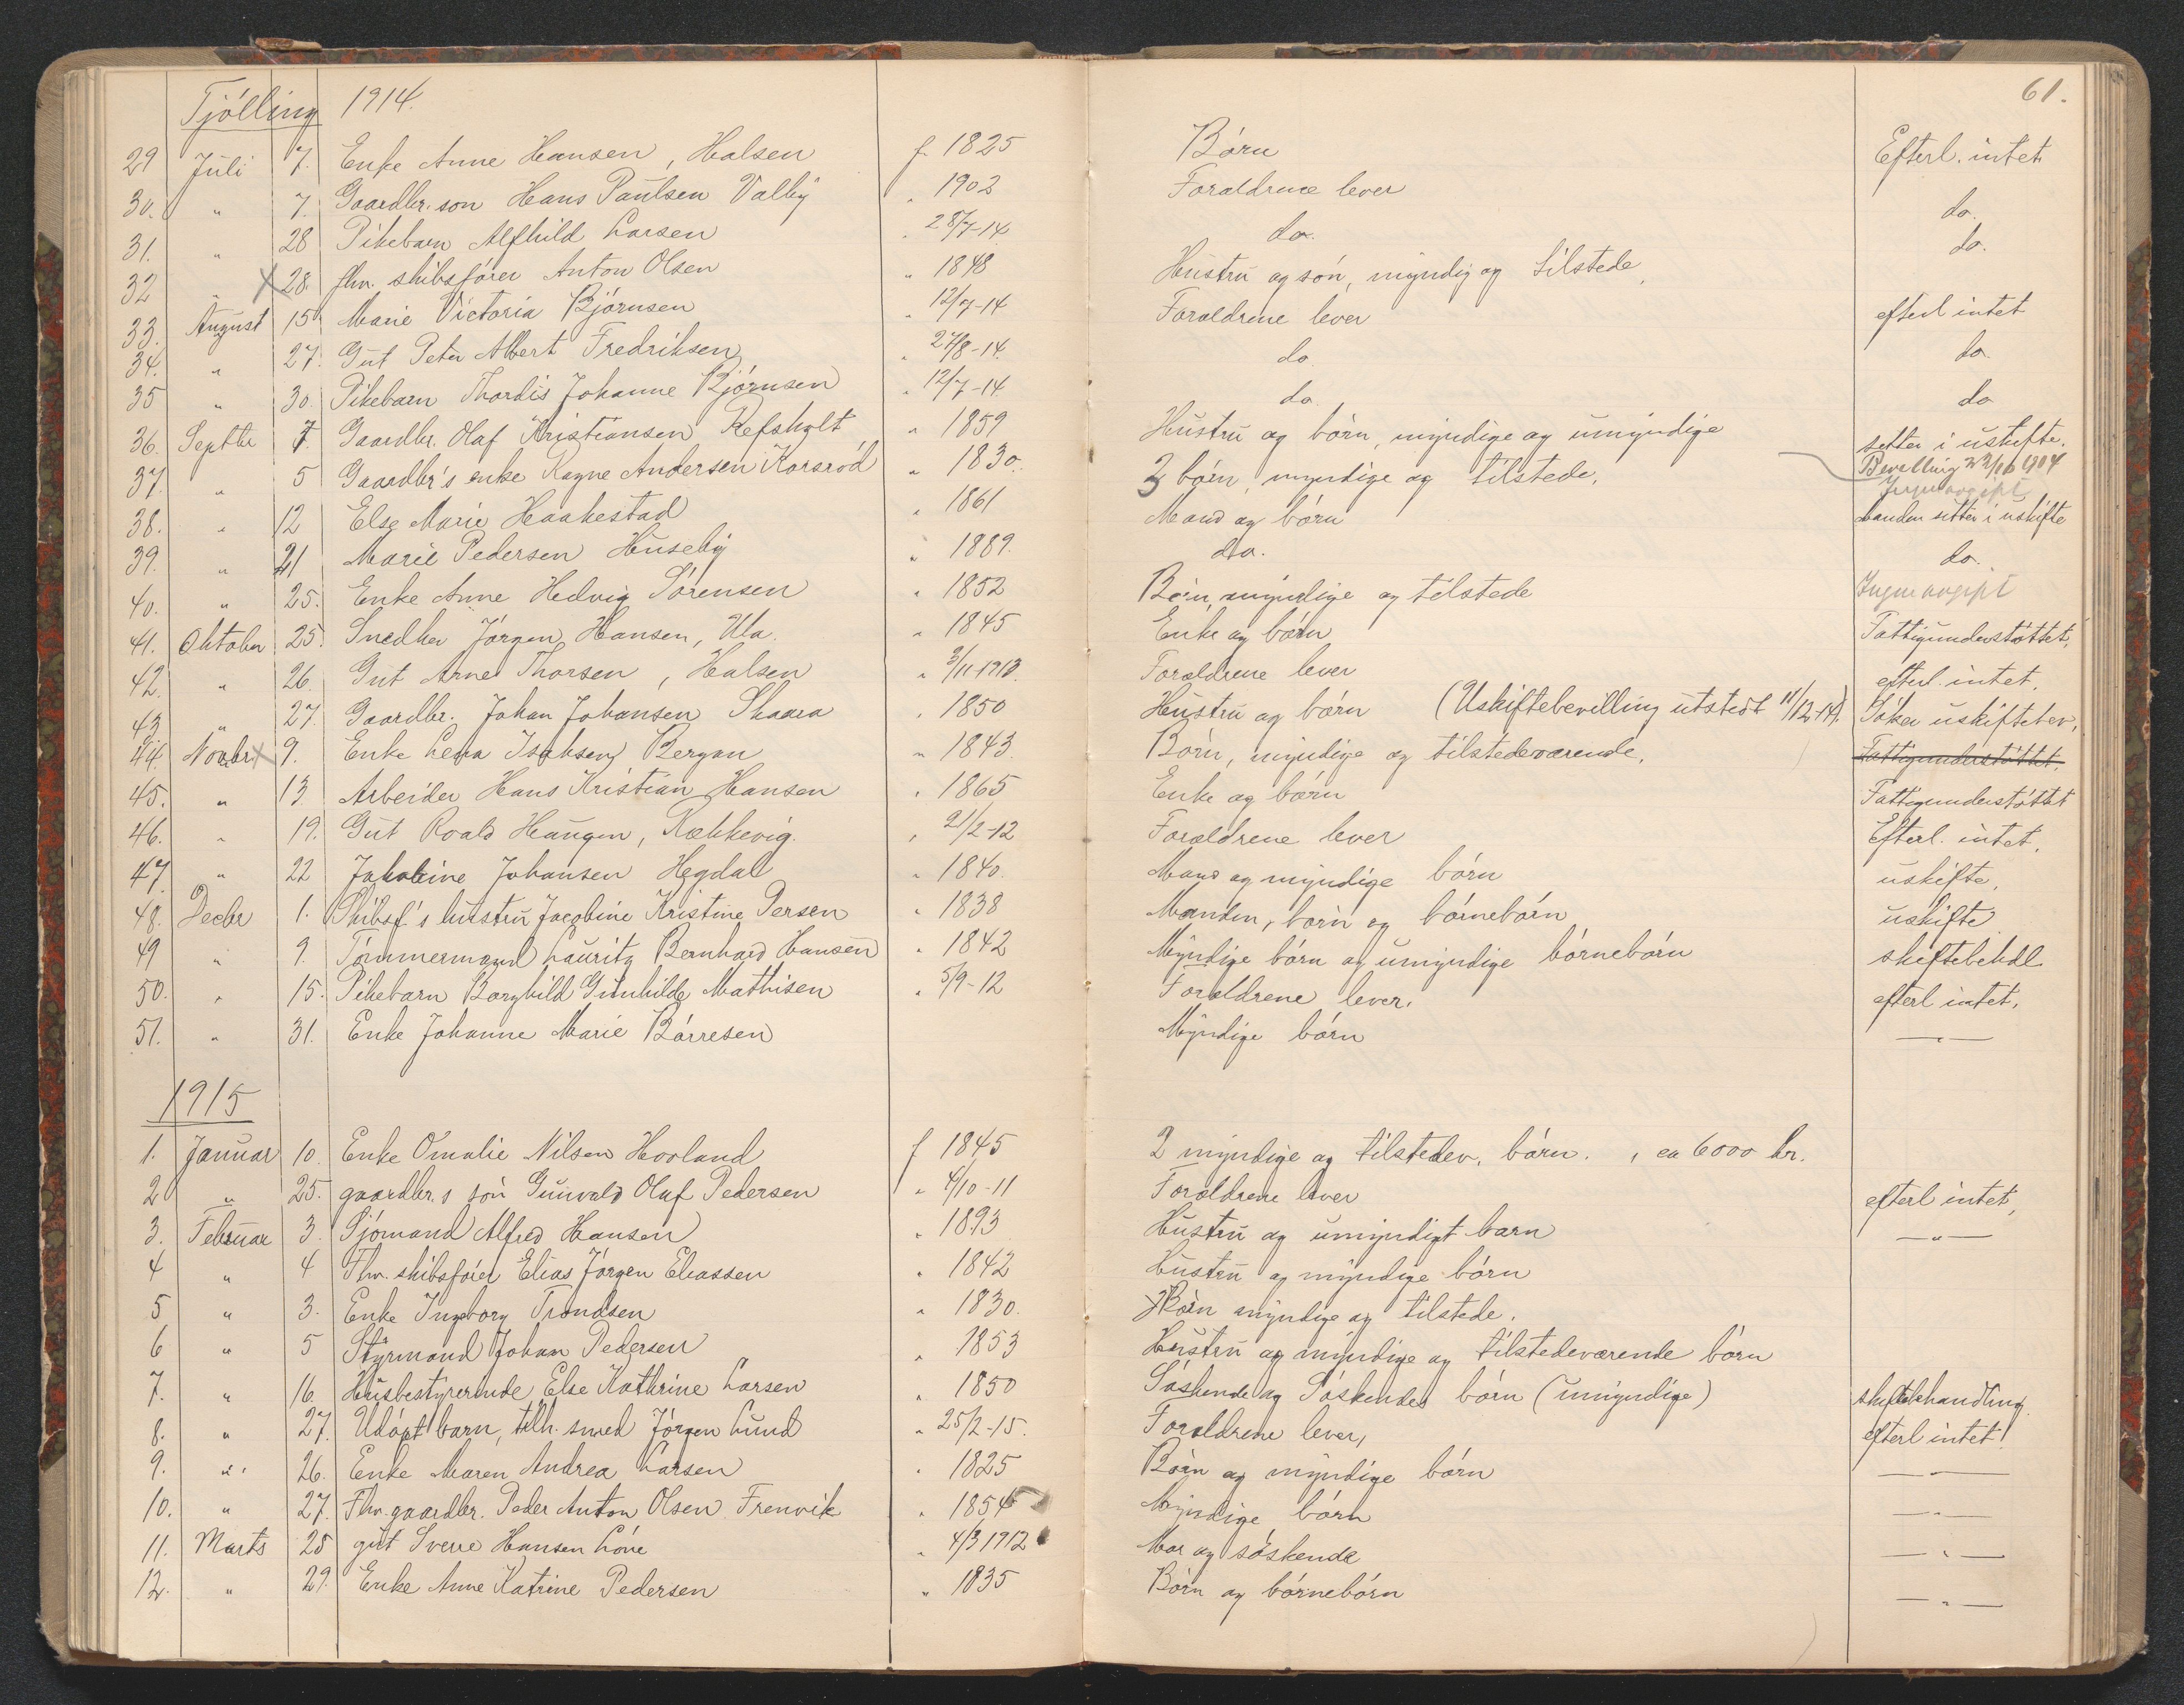 Tjölling 1914. 61.
29 Juli 7. Enke Anne Hansen, Halsen f. 1825 Börn Efterl. intet
30. " 7. Gaardbr. son Hans Paulsen Valby " 1902 Forældrene lever do.
31. " 28 Pikebarn Alfhild Larsen " 28/7-14 do. do.
32 " X 28. fhv. skibsförer Anton Olsen " 1848 Hustru og són, myndig og tilstede,
33. August 15 Marie Victoria Björnsen " 12/7-14 Forældrene lever efterl intet
34. " 27. Gut Peter Albert Fredriksen " 27/8-14. do do.
35 " 30. Pikebarn Thordis Johanne Björnsen " 12/7-14 do. do
36. Septbr 7. Gaardbr. Olaf Kristiansen Refsholt " 1859 Hustru og börn, myndige og umyndige sitter i uskifte.
Bevilling 22/10 1914
37. " 5 Gaardbr's enke Ragne Andersen Korsröd " 1830. 3 börn, myndige og tilstede, Ingen avgift
38. " 12 Else Marie Haakestad " 1861 Mand og börn Manden sitter i uskifte
39. " 21 Marie Pedersen Huseby " 1889. do. do.
40. " 25. Enke Anne Hedvig Sörensen " 1852 Börn, myndige og tilstede Ingen avgift
41. Oktober 25. Snedker Jörgen Hansen, Ula. " 1845 Enke og börn Fattigunderstöttet,
42. " 26. Gut Arne Thorsen, Halsen " 3/11-1913. Forældrene lever efterl. intet,
43 " 27. Gaardbr. Johan Johansen Skaara " 1850 Hustru og börn (Uskiftebevilling utstedt 11/12-14). Söker uskiftebev.
44. Novbr. X 9. Enke Lena Isaksen Bergan " 1843. Börn, myndige og tilstedeværende, Fattigunderstöttet.
45. " 13 Arbeider Hans Kristian Hansen " 1865 Enke og börn Fattigunderstöttet
46. " 19. Gut Roald Haugen, Kækkevig. " 21/2-12 Forældrene lever Efterl. intet.
47. " 22 Jakobine Johansen Hegdal " 1840. Mand og myndige börn uskifte,
48. Decbr 1. Skibsf's hustru Jacobine Kristine Persen " 1838 Manden, börn og börnebörn uskifte
49 " 9. Tömmermand Lauritz Bernhard Hansen " 1842 Myndige börn og umyndige börnebörn skiftebehdl.
50. " 15. Pikebarn Borghild Gunhilde Mathisen " 5/9-12 Forældrene lever. efterl intet,
51. " 31. Enke Johanne Marie Börresen Myndige börn —"—
1915
1. Januar 10. Enke Omalie Nilsen Hovland f 1845 2 myndige og tilstedev. börn. , ca 6000 kr.
2 " 25. gaardbr.s són Gunvald Oluf Pedersen " 4/10-11 Forældrene lever efterl intet,
3. Februar 3. Sjömand Alfred Hansen " 1893 Hustru og umyndigt barn —"—
4 " 4 Fhv. skibsförer Elias Jörgen Eliassen " 1842 Hustru og myndige börn
5 " 3. Enke Ingeborg Trondsen " 1830. Börn myndige og tilstede.
6 " 5 Styrmand Johan Pedersen " 1853 Hustru og myndige og tilstedeværende börn
7. " 16. Husbestyrerinde Else Kathrine Larsen " 1850 Söskende og Söskendes börn (umyndige) skiftebehandling
8. " 27. Udöpt barn, tilh. smed Jörgen Lund " 25/2-15. Forældrene lever, efterl intet!
9. " 26. Enke Maren Andrea Larsen " 1825 Börn og myndige börn —"—
10. " 27. Fhv. gaardbr. Peder Anton Olsen Frenvik " 1854 Myndige börn —"—
11. Marts 25 gut Sverre Hansen Löve " 4/3 1912 Mor og söskende —"—
12. " 29. Enke Anne Katrine Pedersen " 1835 Börn og börnebörn —"—